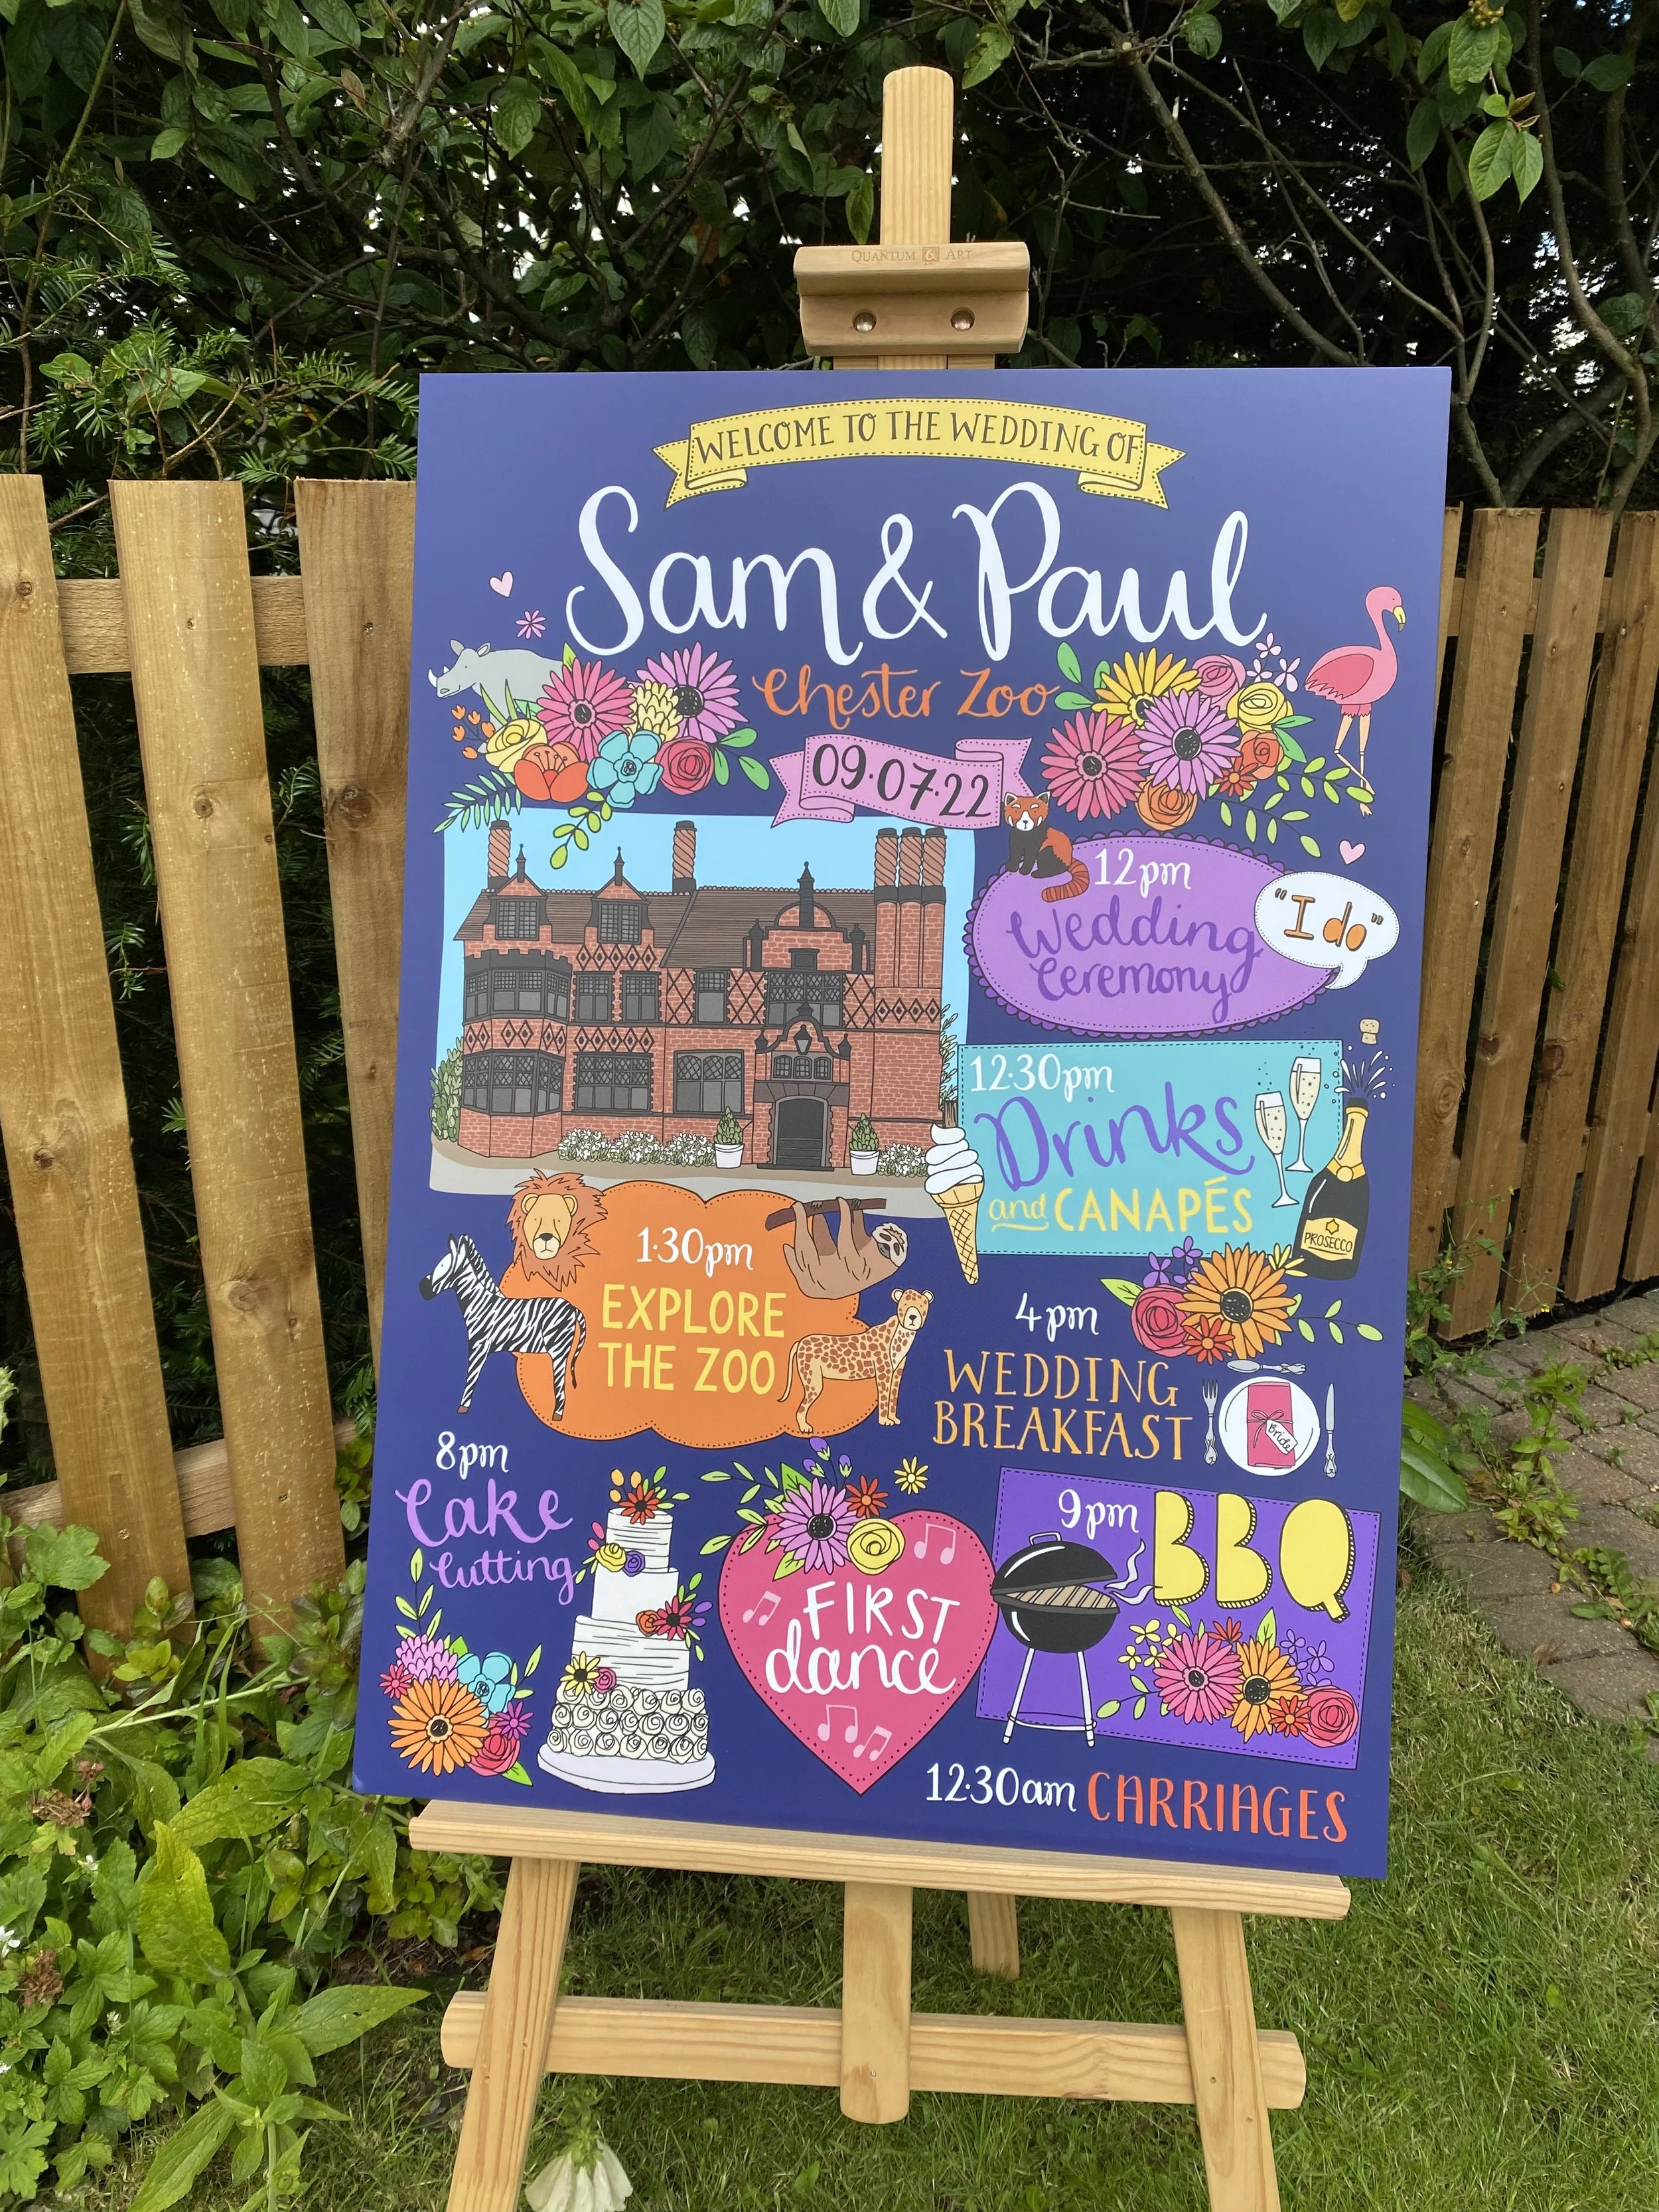 QUANTUM & ART
WELCOME TO THE WEDDING OF
Sam & Paul
Chester Zoo
09.07.22
12pm
Wedding
Ceremony
"I do"
12.30pm
Drinks
and CANAPÉS
PROSECCO
1.30pm
EXPLORE
THE ZOO
4pm
WEDDING
BREAKFAST
Bride
8pm
Cake
Cutting
FIRST
dance
9pm BBQ
12.30am CARRIAGES